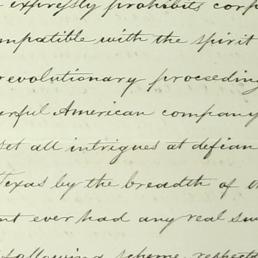 expressly prohibits corp
mpatible with the spirit
revolutionary proceeding
erful American company
set all intrigues at defian
Texas by the breadth of th
nt ever had any real sw
following scheme, respect